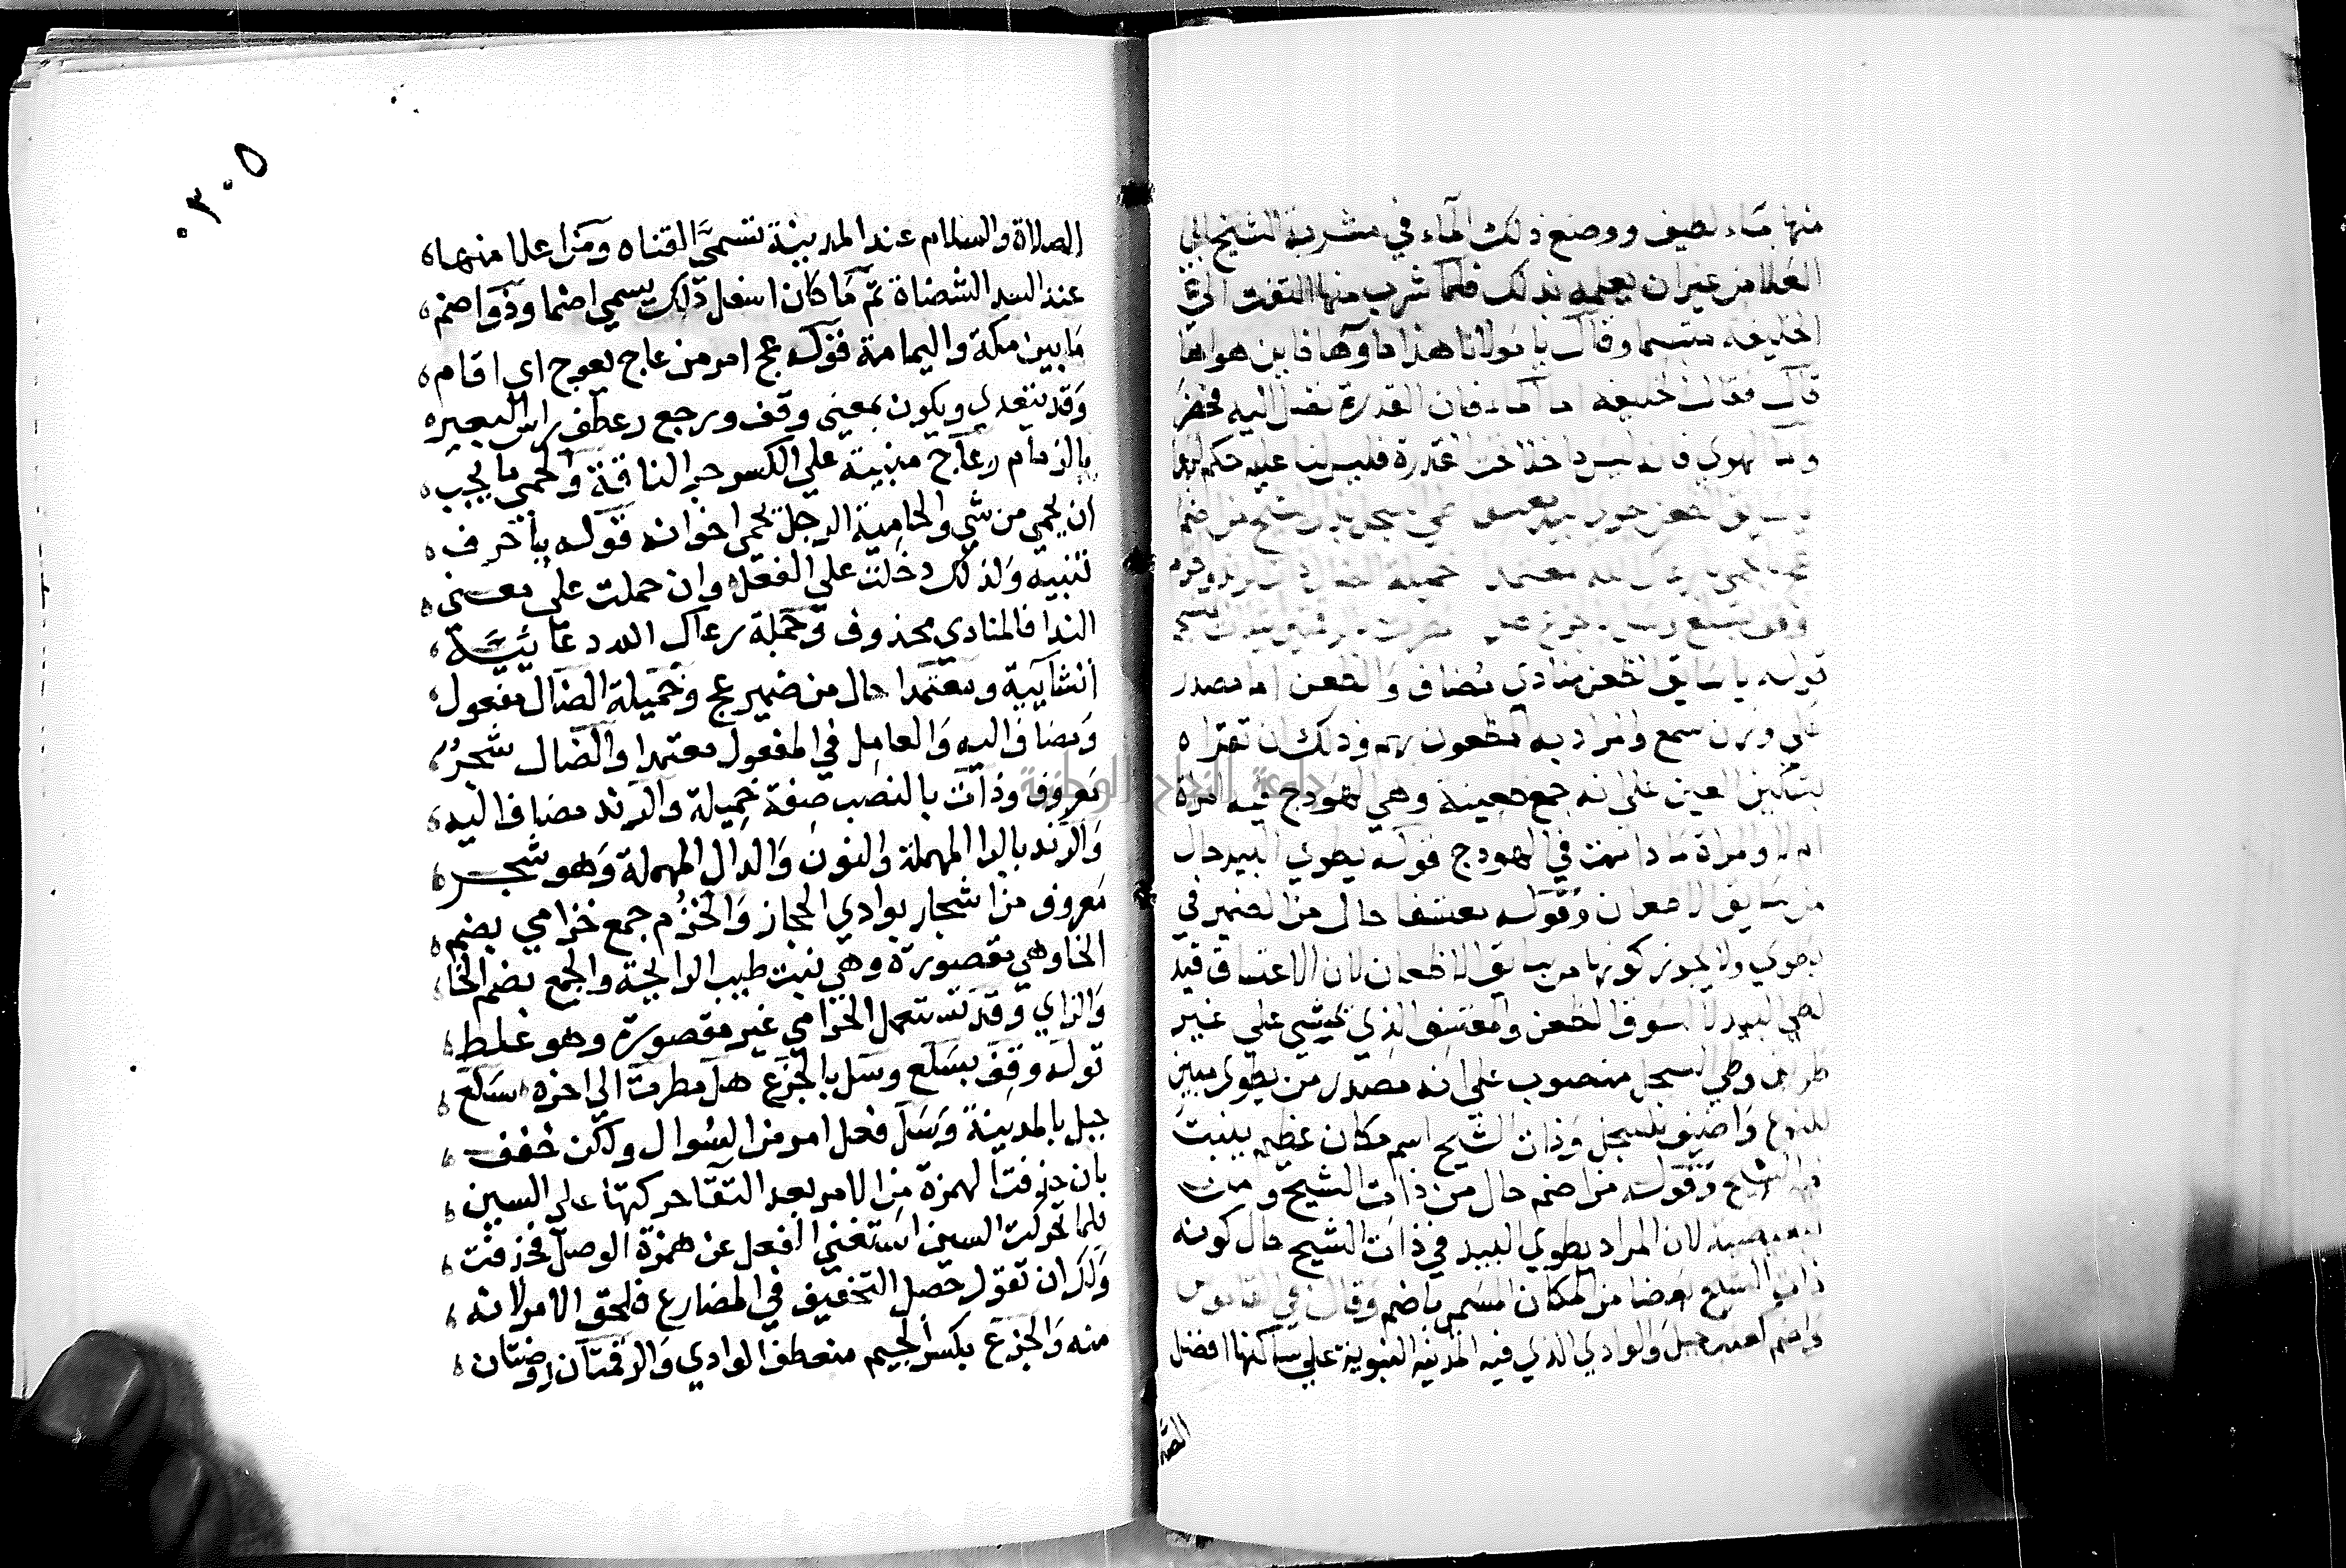 منها بماء لطيف ووضع ذلك الماء في مشربة الشيخ ابي
العلا من غير ان يعلمه بذلك فلما شرب منها التفت الى
الخليفة متبسما وقال يا مولانا هذا ماوها فاين هواها
قال فقال الخليفة اما الماء فان القدرة تصل اليه فحضر
واما الهوي فانه ليس داخلا تحت القدرة فليس لنا عليه حكم
يا سايق الظعن يطوي البيد معتسفا طي السجل بذات الشيح من اضما
عج بالحمى يا رعاك الله معتمدا خميلة الضال ذات الرند والخزم
وقف بسلع وسل بالجزع هل مطرت
قوله يا سايق الظعن منادي مضاف والظعن اما مصدر
علي وزن سمع والمراد به المظعون بهم وذلك ان تقراه
بتسكين العين على انه جمع ظعينة وهي الهودج فيه امراة
ام لا والمراة ما دامت في الهودج قوله يطوي البيد حال
من سايق الاضعان وقوله معتسفا حال من الضمير في
يطوي ولا يجوز كونها من سايق الاظعان لان الاعتساف قيد
لطي البيد لا لسوق الظعن والمعتسف الذي يمشي علي غير
طريق وطي السجل منصوب على انه مصدر من يطوي مبين
للنوع واضيف للسجل وذات الشيح اسم مكان عظيم ينبت
فيه الشيح وقوله من اضم حال من ذات الشيح ومن
تبعيضية لان المراد يطوي البيد في ذات الشيح حال كونه
ذات الشيح بعضا من المكان المسمى باضم وقال في القاموس
واضم كعنب جبل والوادي الذي فيه المدينة النبوية علي ساكنها افضل
الصلاة
٣٠٥
الصلاة والسلام عند المدينة تسمى القناه ومن اعلا منها
عند السد الشضاة ثم ما كان اسفل ذلك يسمي اضما وذو اضم
ما بين مكة واليمامة قوله عج امر من عاج يعوج اي اقام
وقد يتعدي ويكون بمعنى وقف ورجع وعطف راس البعير
بالزمام وعاج مبنية علي الكسر زجر الناقة والحمى ما يجب
ان يحمي من شي والحامية الرجل يحمي اخوانه قوله يا حرف
تنبيه ولذلك دخلت علي الفعل وان حملت على معنى
الندا فالمنادي محذوف وجملة رعاك الله دعاييية
انشايية ومعتمدا حال من ضمير عج وخميلة الضال مفعول
ومضاف اليه والعامل في المفعول معتمدا والضال شجر
معروف وذات بالنصب صفة خميلة والرند مضاف اليه
والرند بالرا المهملة والنون والدال المهملة وهو شجر
معروف من اشجار بوادي الحجاز والخزم جمع خزامي بضم
الخا وهي مقصورة وهي نبت طيب الرايحة والجمع بضم الخا
والزاي وقد تستعمل الخزامي غير مقصورة وهو غلط
قوله وقف بسلع وسل بالجزع هل مطرت الى اخره سلع
جبل بالمدينة وسل فعل امر من السوال ولكن خفف
بان حذفت الهمزة من الامر بعد القا حركتها على السين
فلما تحركت السين استغني الفعل عن همزة الوصل فحذفت
ولك ان تقول حصل التخفيف في المضارع فلحق الامر لانه
منه والجزع بكسر الجيم منعطف الوادي والرقمتان روضتان
جامعة النجاح الوطنية